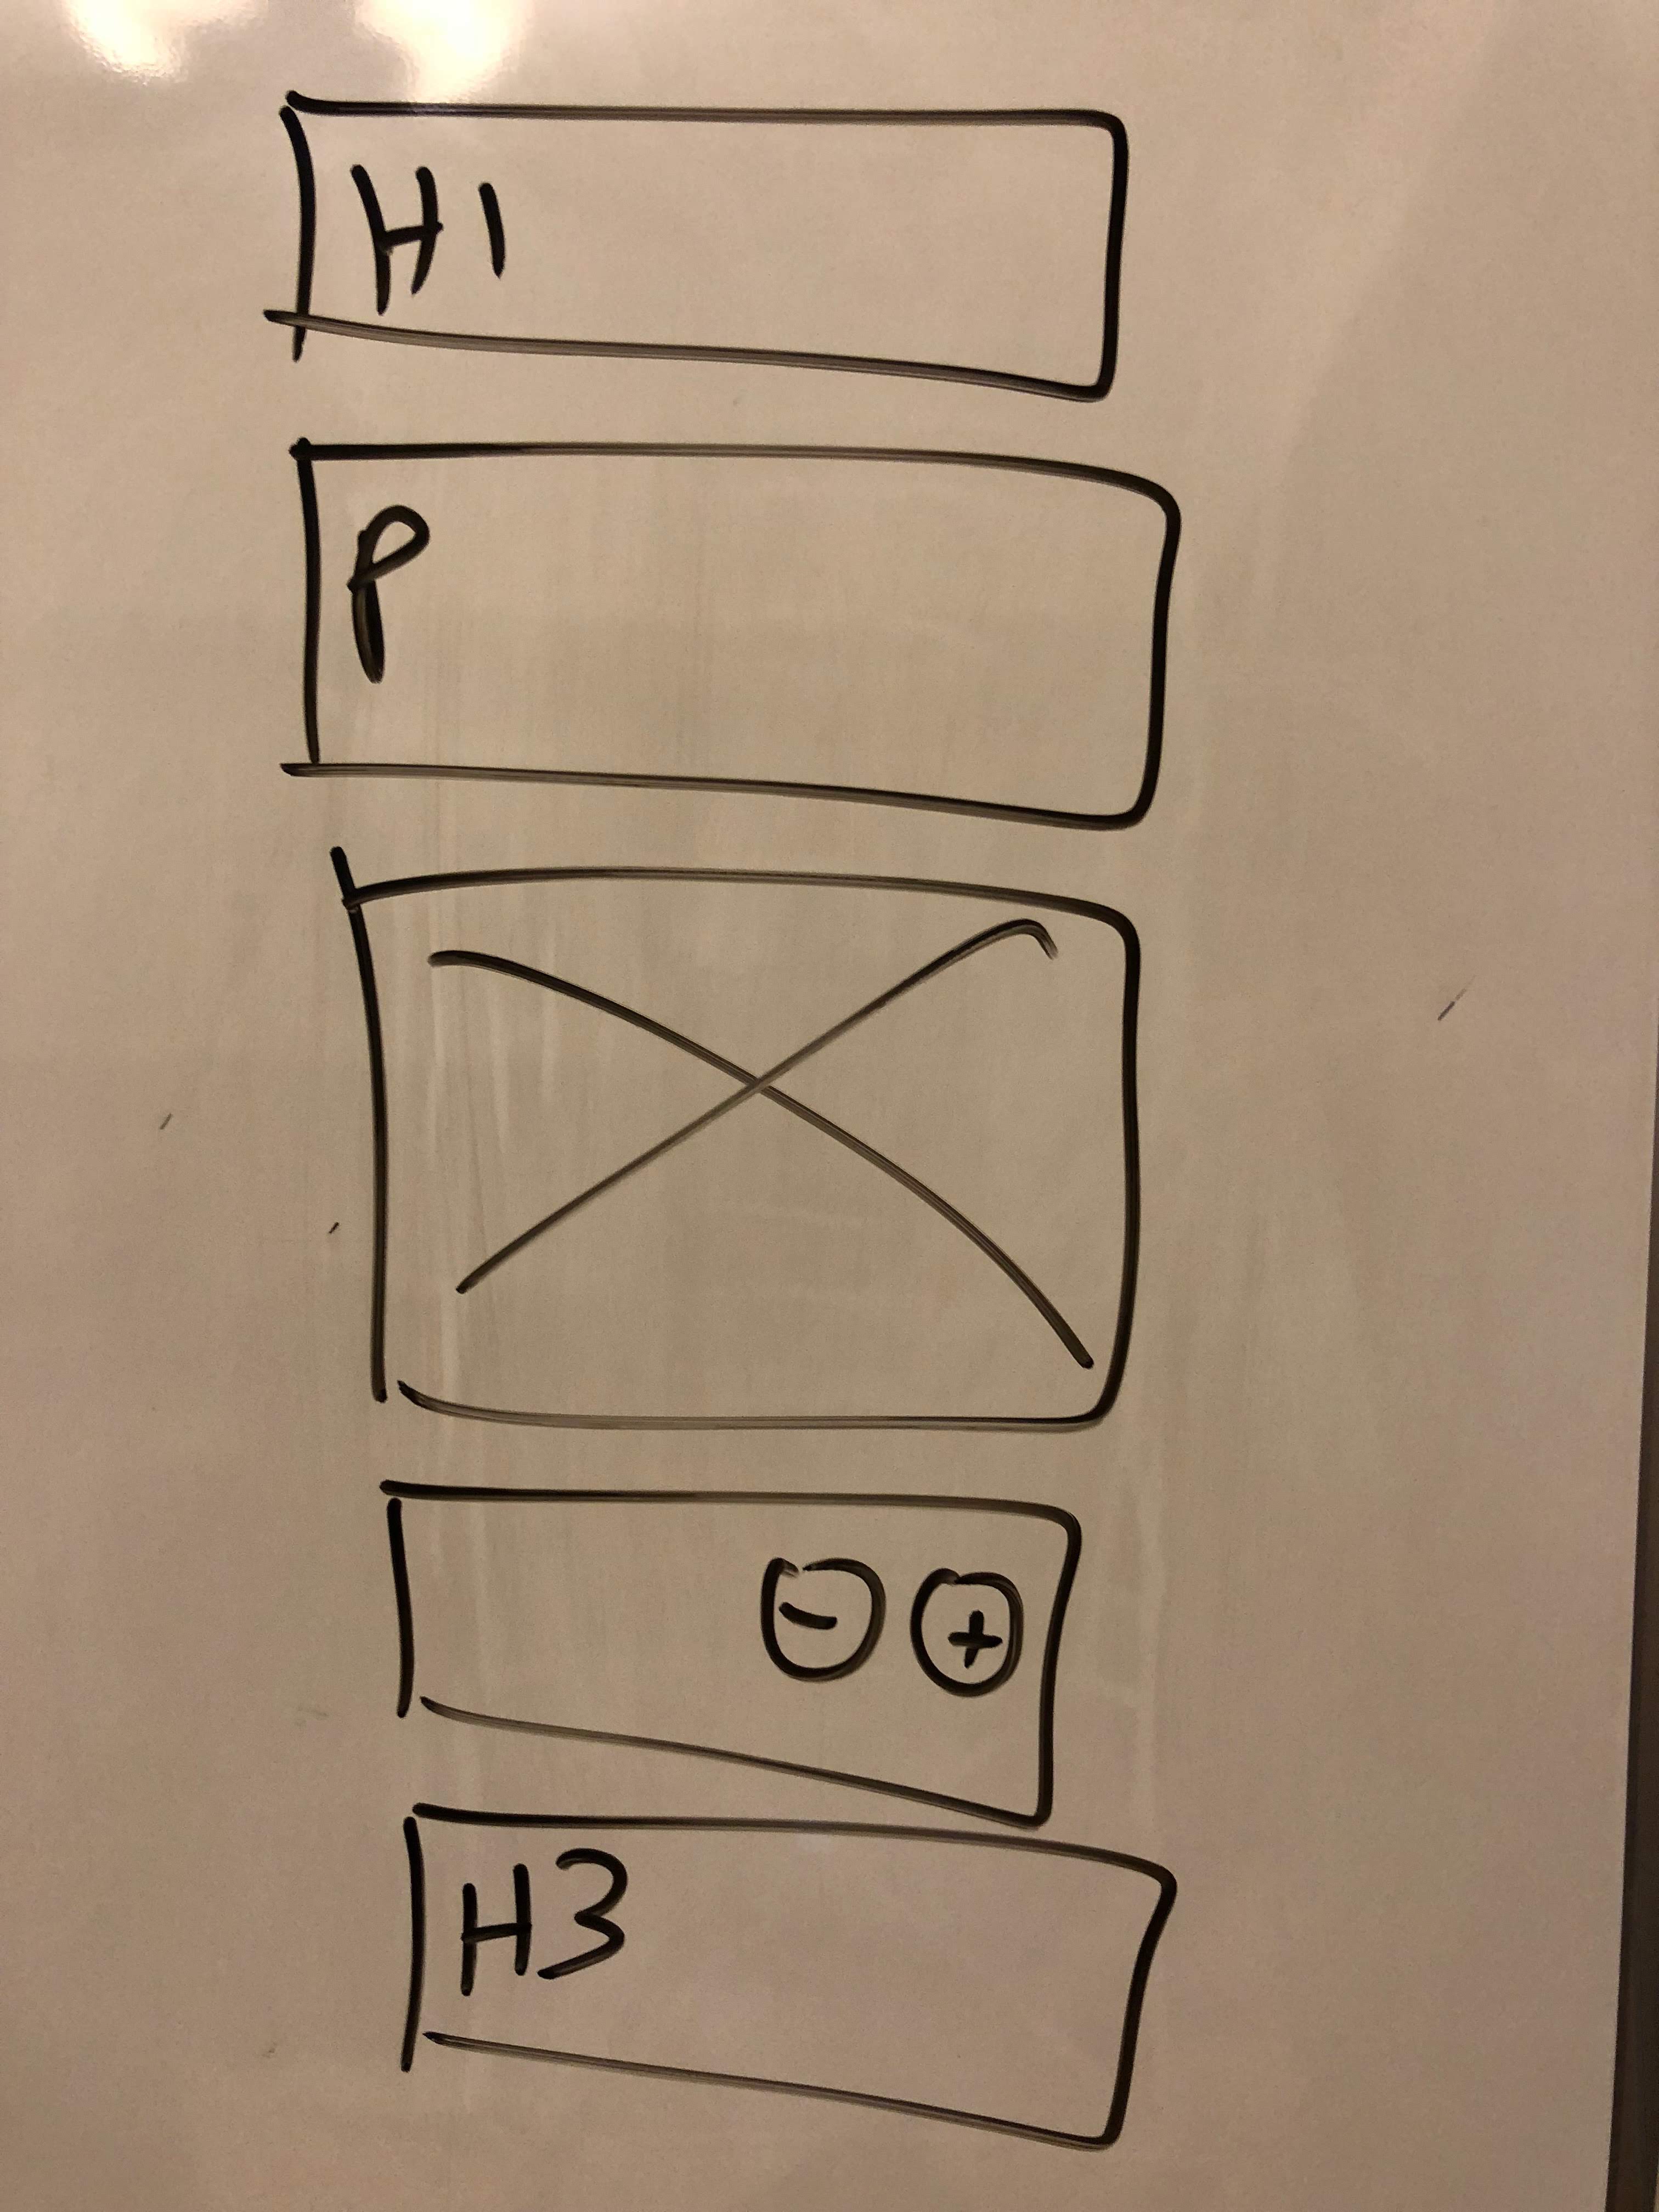 H1
P
- +
H3